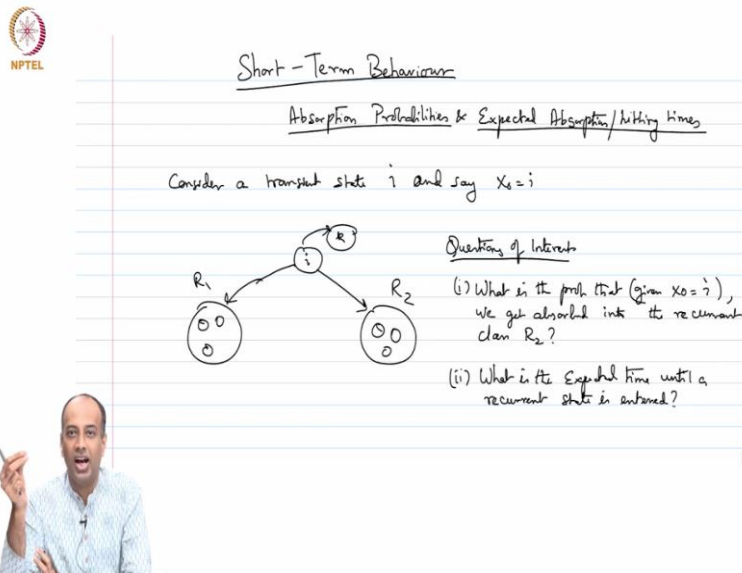 NPTEL
Short-Term Behaviour
Absorption Probabilities & Expected Absorption/hitting times
Consider a transient state i and say X₀=i
k
i
R₁
R₂
Questions of Interest
(i) What is the prob that (given X₀=i),
we get absorbed into the recurrent
class R₂?
(ii) What is the Expected time until a
recurrent state is entered?